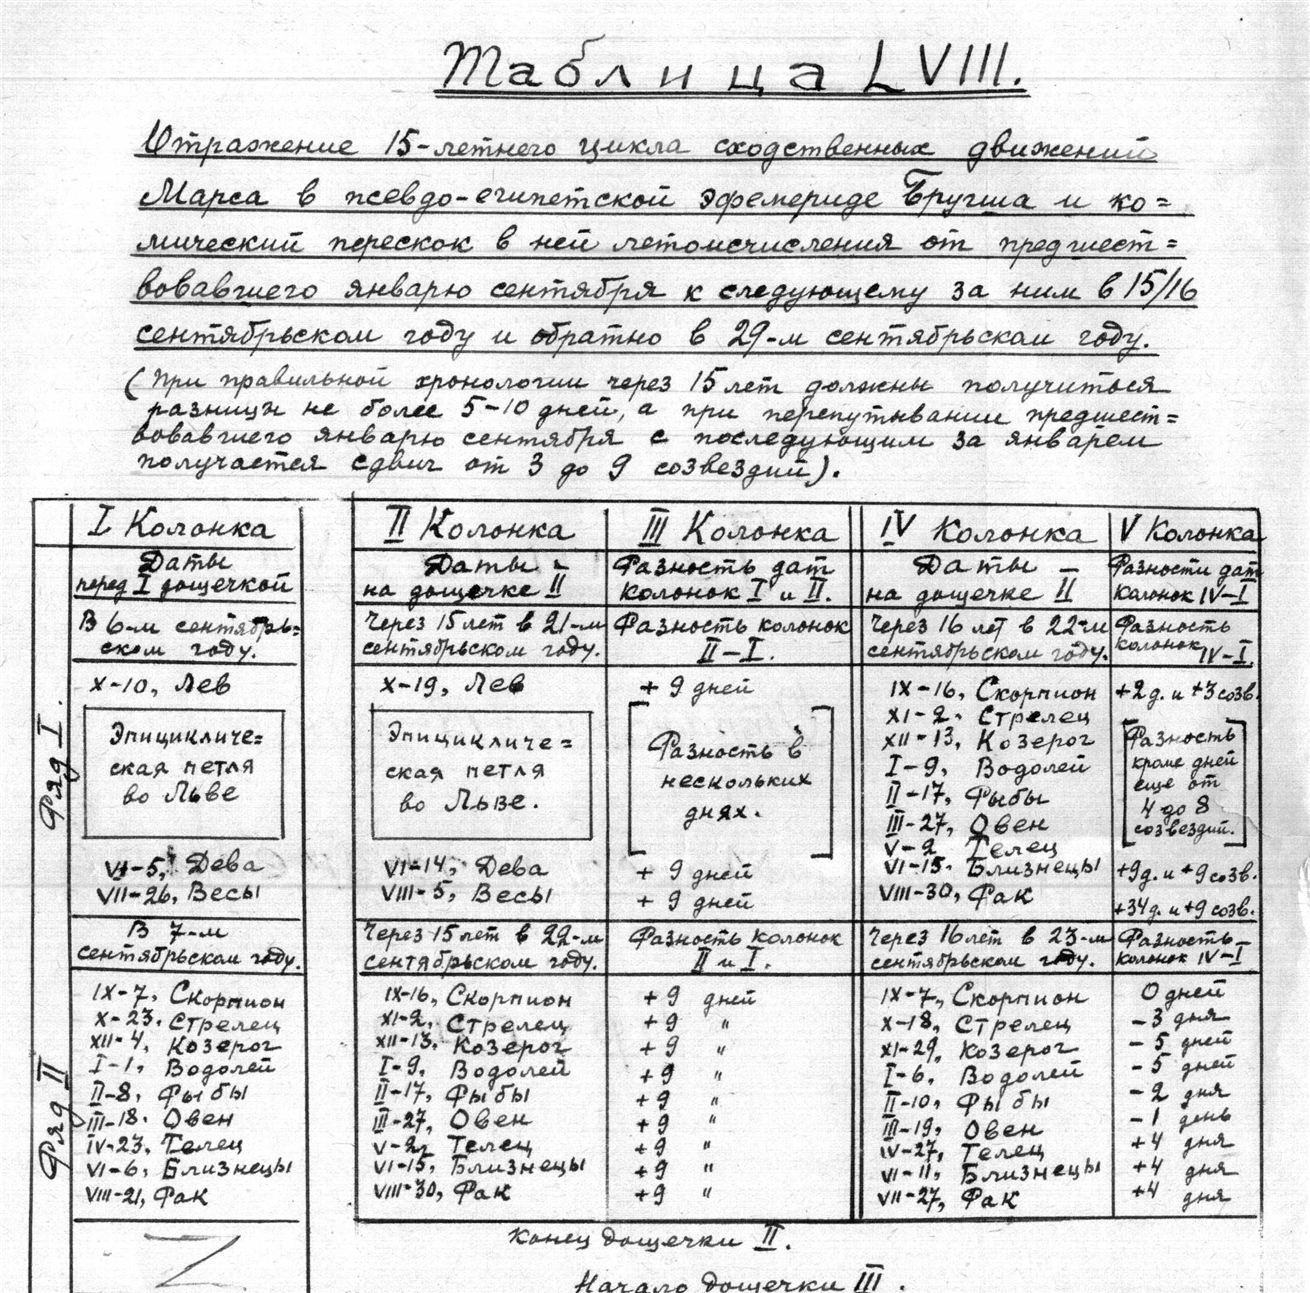 Таблица LVIII.
Отражение 15-летнего цикла сходственных движений
Марса в псевдо-египетской эфемериде Бругша и ко=
мический перескок в ней летоисчисления от предшест=
вовавшего январю сентября к следующему за ним в 15/16
сентябрьском году и обратно в 29-м сентябрьском году.
(При правильной хронологии через 15 лет должны получиться
разницы не более 5-10 дней, а при перепутывании предшест=
вовавшего январю сентября с последующим за январем
получается сдвиг от 3 до 9 созвездий).
I Колонка
II Колонка
III Колонка
IV Колонка
V Колонка
Даты
перед I дощечкой
Даты -
на дощечке II
Разность дат
колонок I и II.
Даты
на дощечке II
Разности дат
колонок IV-I
В 6-м сентябрь=
ском году.
Через 15 лет в 21-м
сентябрьском году.
Разность колонок
II-I.
Через 16 лет в 22-м
сентябрьском году.
Разность
колонок
IV-I
Ряд I.
X-10, Лев
Эпицикличе=
ская петля
во Льве
VI-5, Дева
VII-26, Весы
X-19, Лев
Эпицикличе=
ская петля
во Льве.
VI-14, Дева
VIII-5, Весы
+ 9 дней
Разность в
нескольких
днях.
+ 9 дней
+ 9 дней
IX-16, Скорпион
XI-2. Стрелец
XII-13, Козерог
I-9, Водолей
II-17, Рыбы
III-27, Овен
V-2 Телец
VI-15, Близнецы
VIII-30, Рак
+2д. и +3 созв.
Разность
кроме дней
еще от
4 до 8
созвездий.
+9д. и +9 созв.
+34д. и +9 созв.
В 7-м
сентябрьском году.
Через 15 лет в 22-м
сентябрьском году.
Разность колонок
II и I.
Через 16 лет в 23-м
сентябрьском году.
Разность
колонок IV-I
Ряд II
IX-7, Скорпион
X-23. Стрелец
XII-4, Козерог
I-1, Водолей
II-8, Рыбы
III-18. Овен
IV-23, Телец
VI-6, Близнецы
VIII-21, Рак
IX-16, Скорпион
XI-2, Стрелец
XII-13, Козерог
I-9, Водолей
II-17, Рыбы
III-27, Овен
V-2, Телец
VI-15, Близнецы
VIII-30, Рак
+ 9 дней
+9 "
+9 "
+9 "
+9 "
+9 "
+9 "
+9 "
+9 "
IX-7, Скорпион
X-18, Стрелец
XI-29, Козерог
I-6, Водолей
II-10, Рыбы
III-19, Овен
IV-27, Телец
VI-11, Близнецы
VII-27, Рак
0 дней
- 3 дня
- 5 дней
- 5 дней
- 2 дня
- 1 день
+4 дня
+4 дня
+4 дня
Конец дощечки II.
Начало дощечки III.